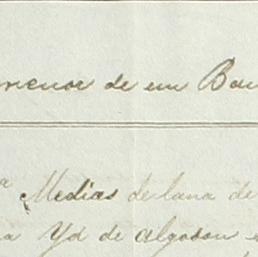 menor de un Bau
Medias de lana de
Yd de algodon